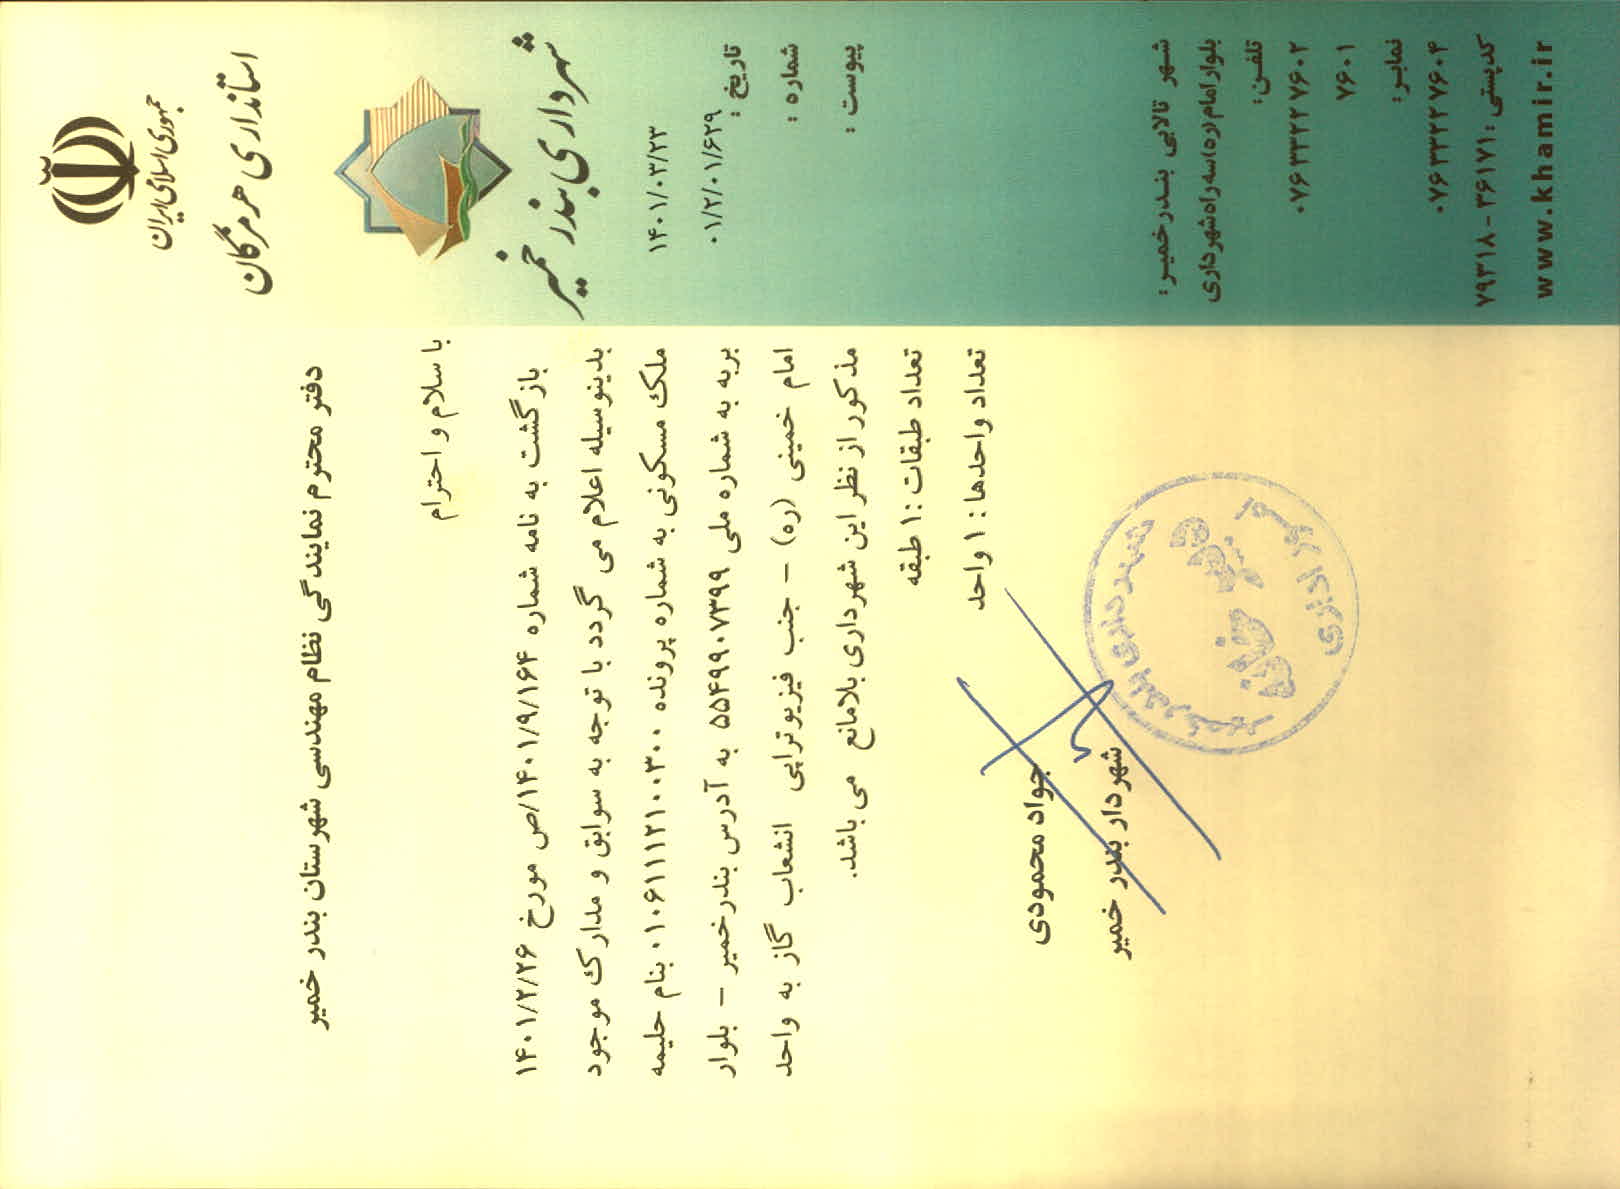 جمهوری اسلامی ایران
استانداری هرمزگان
شهرداری بندر خمیر
۱۴۰۱/۰۳/۲۳
تاریخ :
۰۱/۲/۰۱/۶۲۹
شماره :
پیوست :
دفتر محترم نمایندگی نظام مهندسی شهرستان بندر خمیر
با سلام و احترام
بازگشت به نامه شماره ۱۴۰۱/۹/۱۶۴/ص مورخ ۱۴۰۱/۲/۲۶
بدینوسیله اعلام می گردد با توجه به سوابق و مدارک موجود
ملک مسکونی به شماره پرونده ۰۱۰۶۱۱۱۲۱۰۰۳۰۰ بنام حلیمه
بربه به شماره ملی ۵۵۴۹۹۰۷۳۹۹ به آدرس بندرخمیر – بلوار
امام خمینی (ره) – جنب فیزیوتراپی انشعاب گاز به واحد
مذکور از نظر این شهرداری بلامانع می باشد.
تعداد طبقات :۱ طبقه
تعداد واحدها : ۱ واحد
جواد محمودی
شهردار بندر خمیر
شهرداری بندر خمیر
امور اداری
شهر تالابی بندرخمیر:
بلوار امام (ره) سه راه شهرداری
تلفن:
۰۷۶۳۳۲۲۷۶۰۲
۷۶۰۱
نمابر:
۰۷۶۳۳۲۲۷۶۰۴
کدپستی : ۳۶۱۷۱ - ۷۹۳۱۸
www.khamir.ir